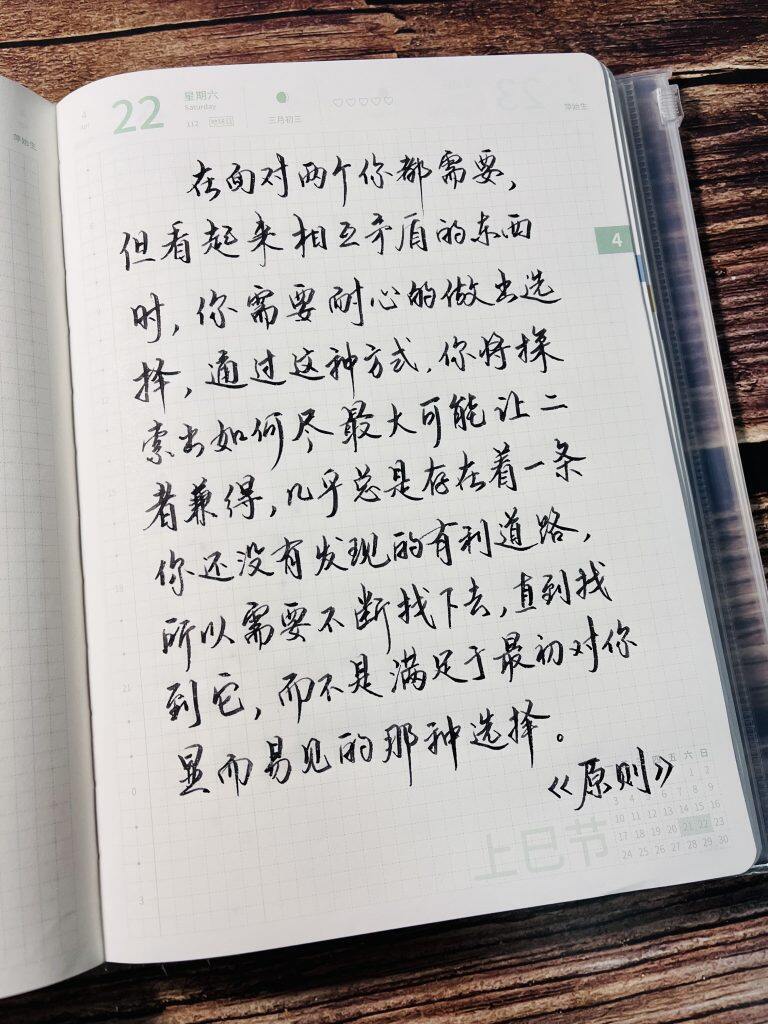 22
星期六
Saturday
112
三月初三
4
在面对两个你都需要,
但看起来相互矛盾的东西
时,你需要耐心的做出选
择,通过这种方式,你将探
索出如何尽最大可能让二
者兼得,几乎总是存在着一条
你还没有发现的有利道路,
所以需要不断找下去,直到找
到它,而不是满足于最初对你
显而易见的那种选择。
《原则》
上巳节
五 六 日
1 2
3 4 5 6 7 8 9
10 11 12 13 14 15 16
17 18 19 20 21 22 23
24 25 26 27 28 29 30